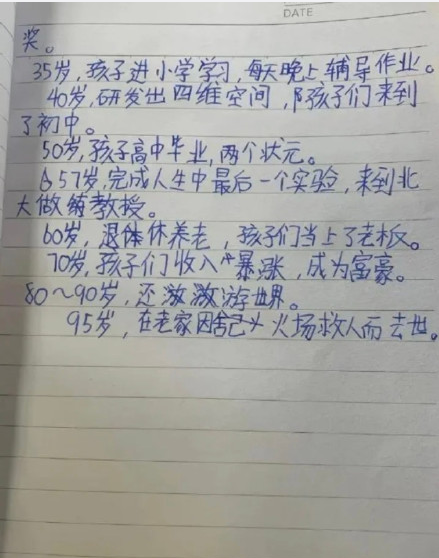 DATE
奖。
35岁,孩子进小学学习,每天晚上辅导作业。
40岁,研发出四维空间,孩子们来到
了初中。
50岁,孩子高中毕业,两个状元。
57岁,完成人生中最后一个实验,来到北
大做教授。
60岁,退休养老,孩子们当上了老板。
70岁,孩子们收入暴涨,成为富豪。
80～90岁,还游世界。
95岁,在老家因舍己火场救人而去世。